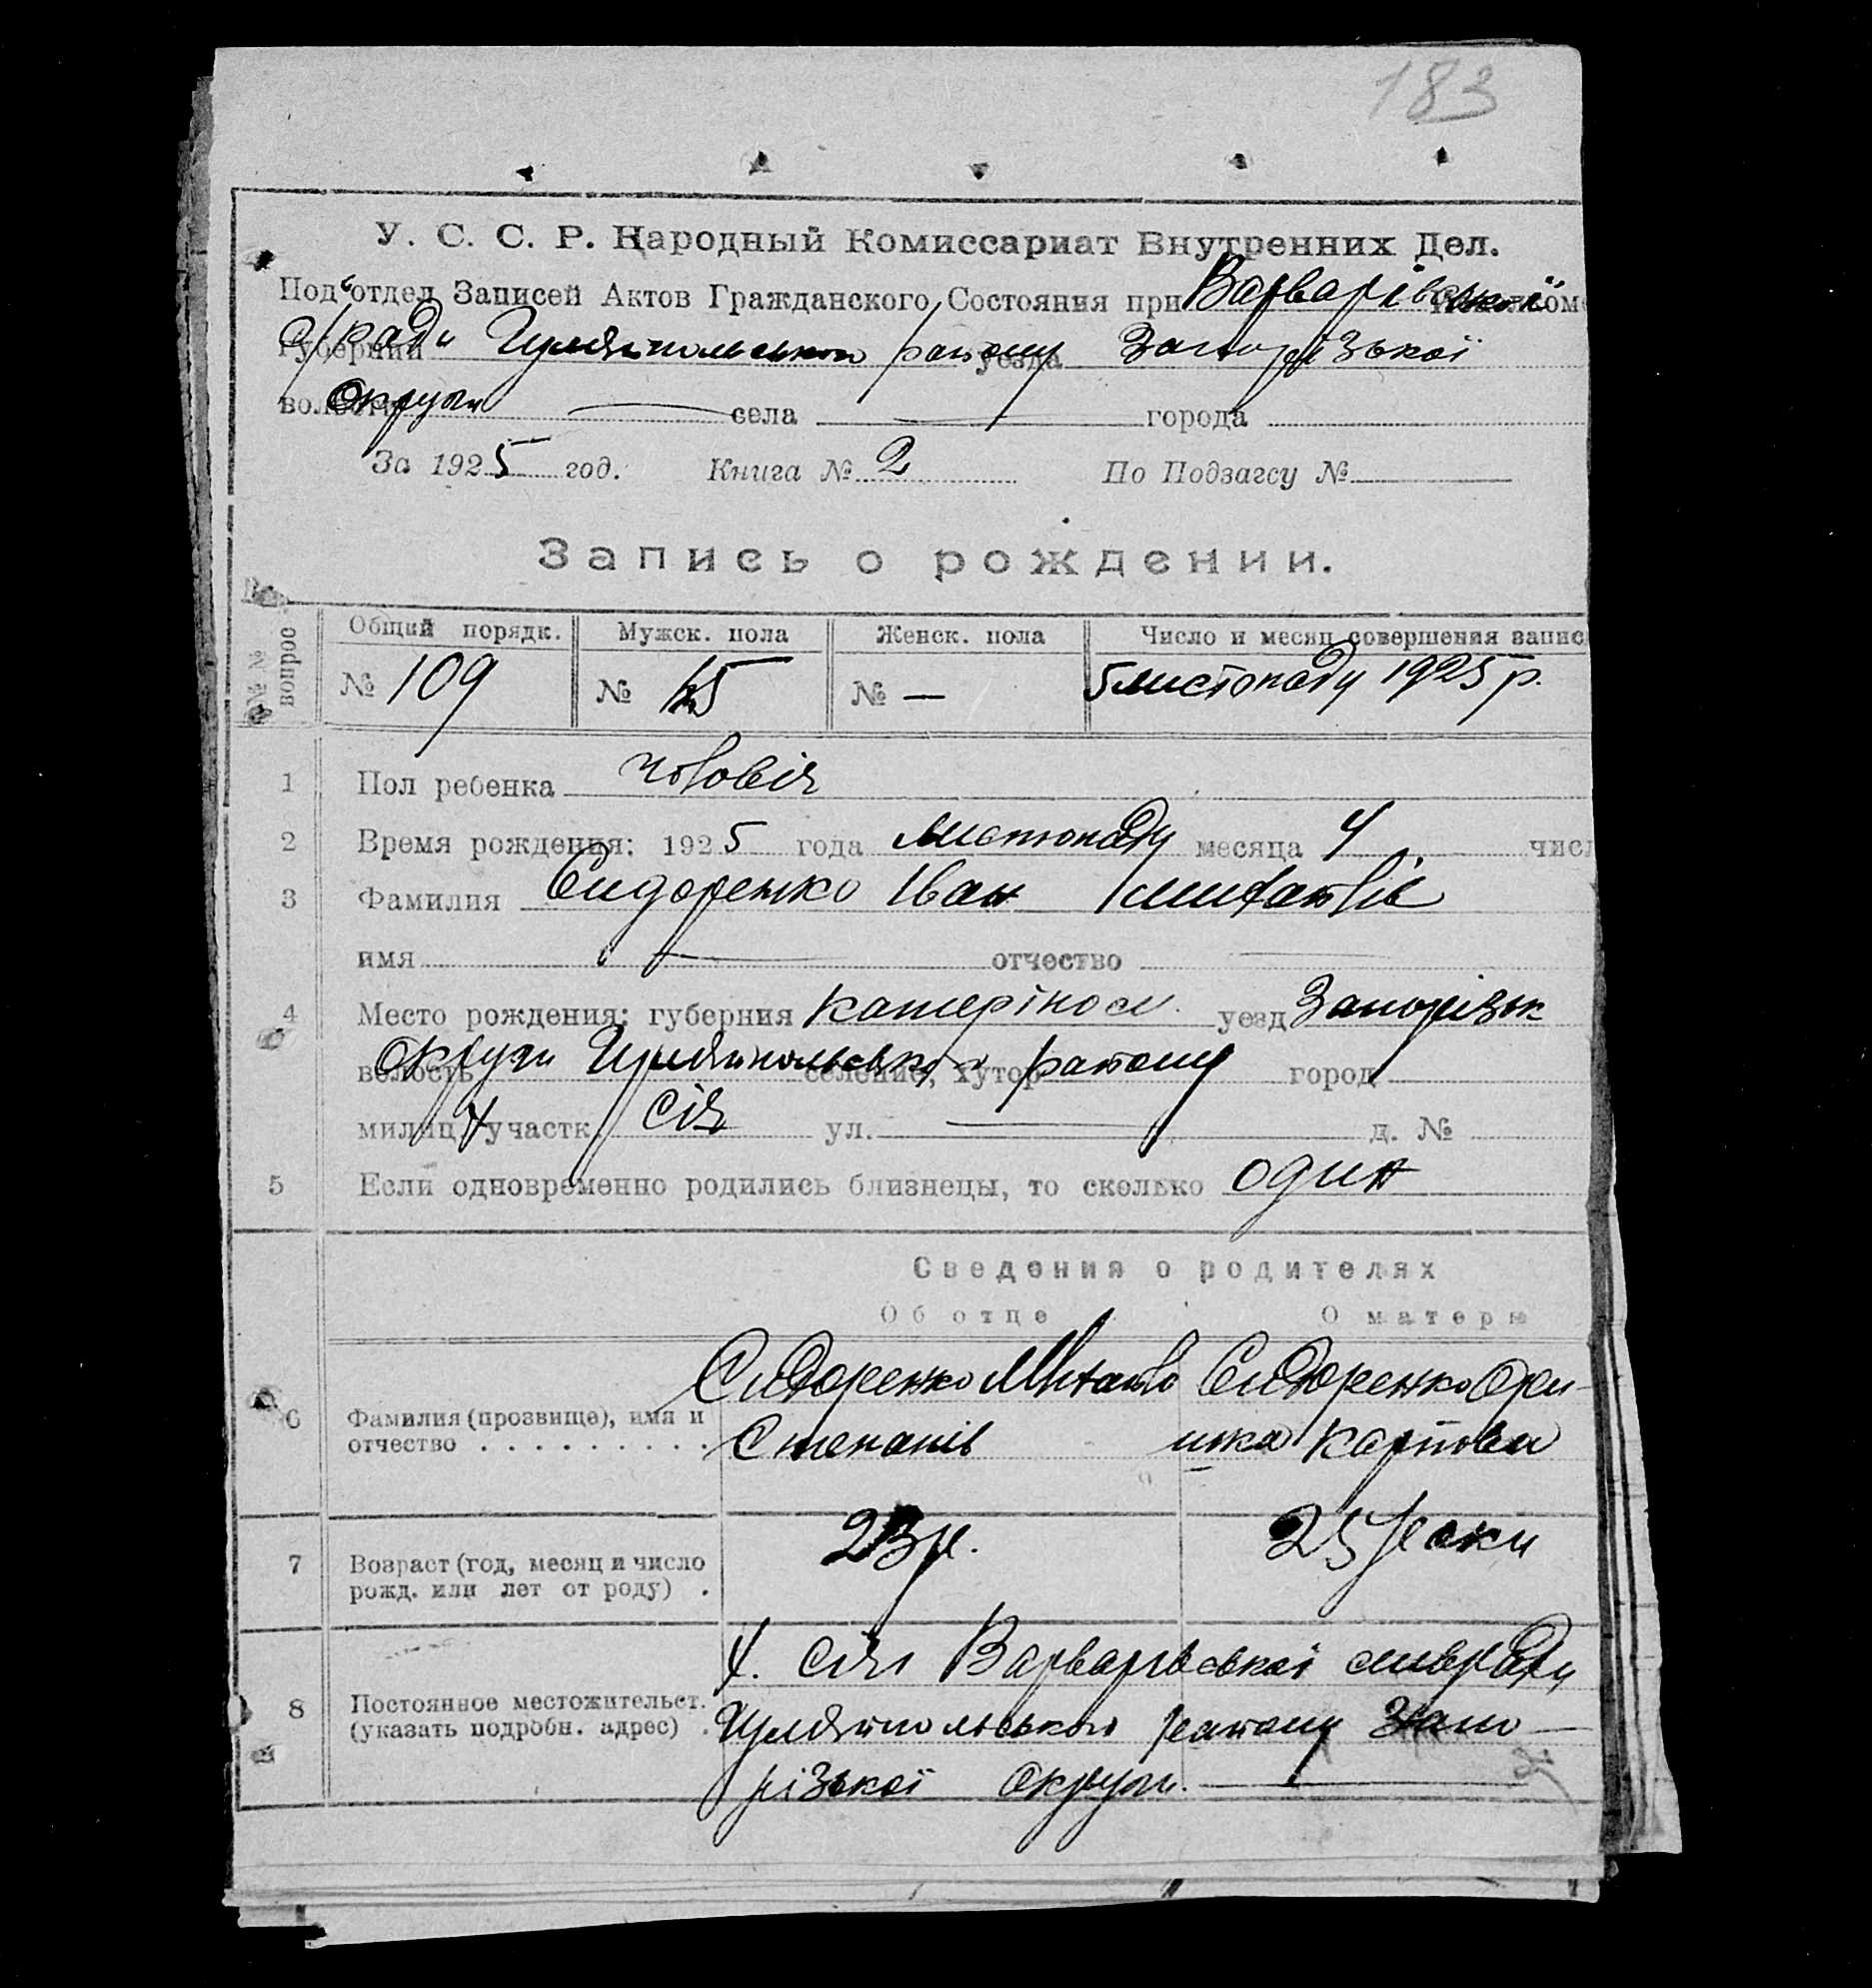 183
У. С. С. Р. Народный Комиссариат Внутренних Дел.
Под'отдел Записей Актов Гражданского Состояния при Варварівській
с/ради Гуляйпольського району уезда Запорізької
округи села города
За 1925 год. Книга № 2 По Подзагсу №
Запись о рождении.
№№ вопрос Общий порядк. Мужск. пола Женск. пола Число и месяц совершения запис
№ 109 № № — 5 листопаду 1925 р.
1 Пол ребенка чоловіч
2 Время рождения: 1925 года листопаду месяца 4 числ
3 Фамилия Сидоренко Іван Михайлів
имя отчество
4 Место рождения: губерния Катеріносл. уезд Запорізьк
округи Гуляйпольського селение, хутор району город
милиц. участк. Січ ул. — д. №
5 Если одновременно родились близнецы, то сколько один
Сведения о родителях
Об отце О матери
Сидоренко Михайло Сидоренко Ори-
6 Фамилия (прозвище), имя и
отчество . . . . . . . . . Степанів Карпова
7 Возраст (год, месяц и число
рожд. или лет от роду) . 23 р. 25 роки
х. Січ Варварівської сільради
8 Постоянное местожительст.
(указать подробн. адрес) . Гуляйпольського району Запо-
різької округи.